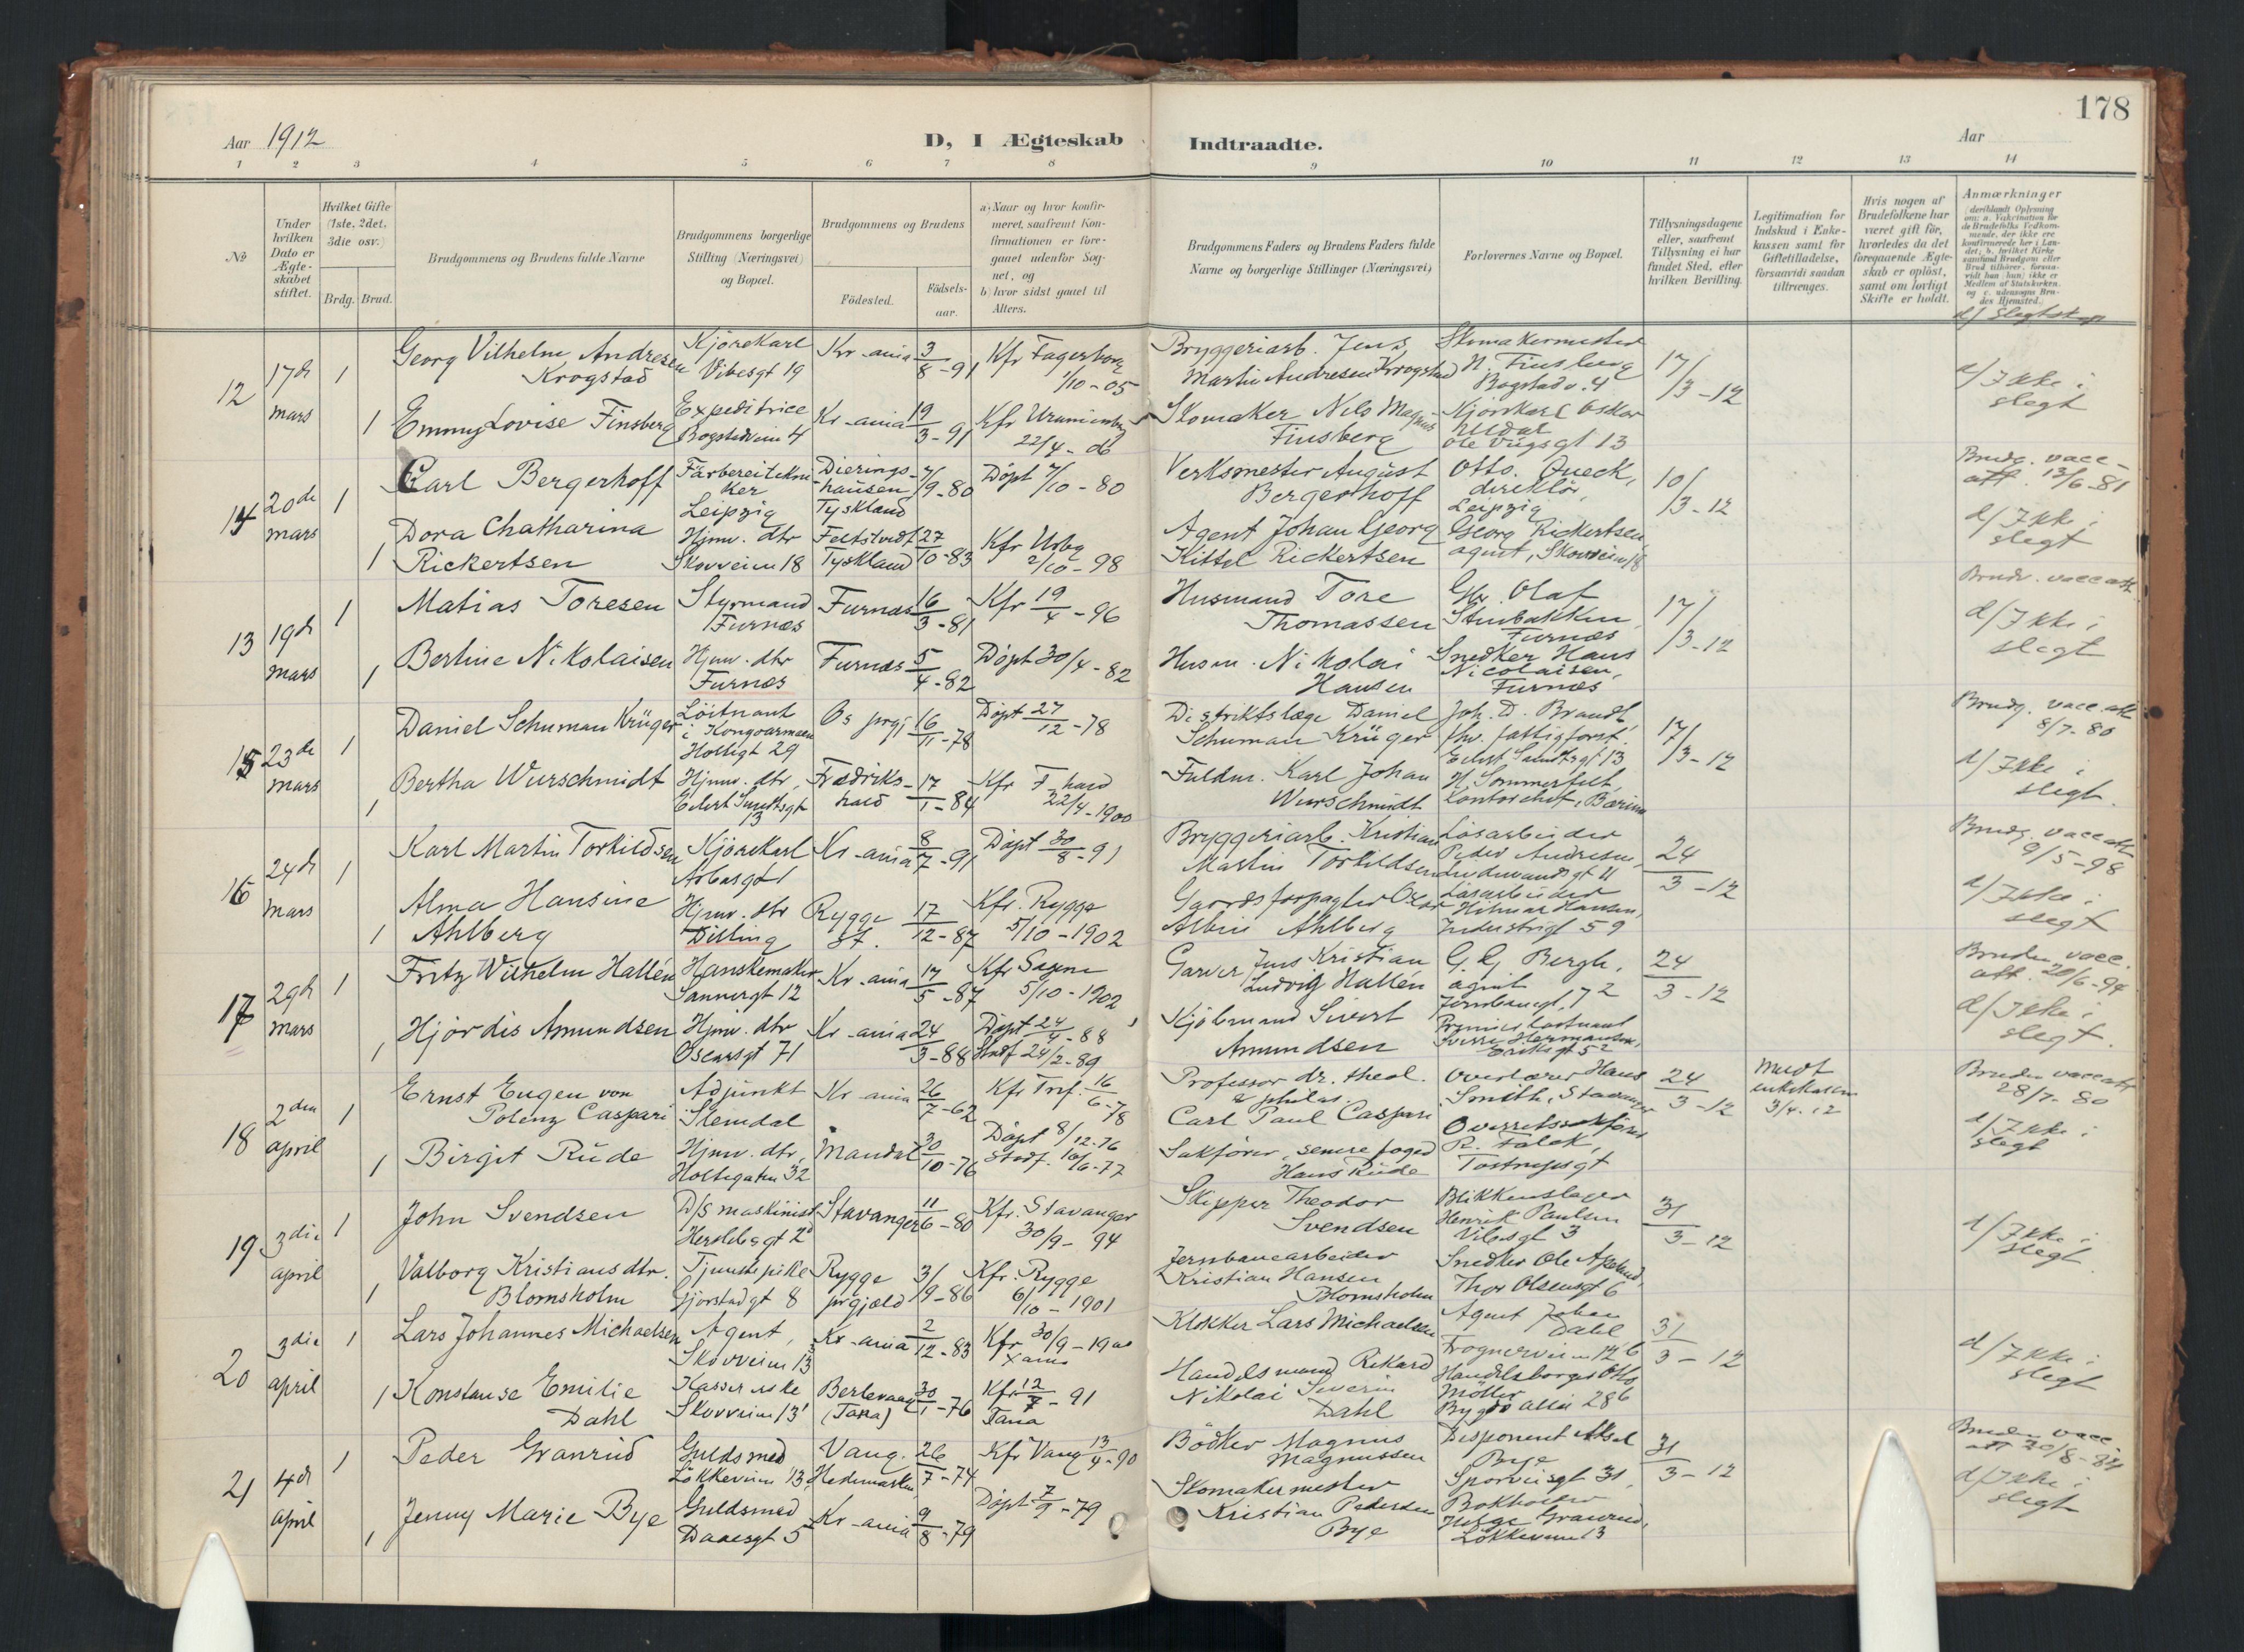 178
Aar 1912
D, I Ægteskab Indtraadte.
Aar
1 2 3 4 5 6 7 8 9 10 11 12 13 14
No
Under
hvilken
Dato er
Ægte-
skabet
stiftet.
Hvilket Gifte
(1ste, 2det,
3die osv.)
Brdg. Brud.
Brudgommens og Brudens fulde Navne
Brudgommens borgerlige
Stilling (Næringsvei)
og Bopæl.
Brudgommens og Brudens
Födested.
Födsels-
aar.
a) Naar og hvor konfir-
meret, saafremt Kon-
firmationen er fore-
gaaet udenfor Sog-
net, og
b) hvor sidst gaaet til
Alters.
Brudgommens Faders og Brudens Faders fulde
Navne og borgerlige Stillinger (Næringsvei)
Forlovernes Navne og Bopæl.
Tillysningsdagene
eller, saafremt
Tillysning ei har
fundet Sted, efter
hvilken Bevilling.
Legitimation for
Indskud i Enke-
kassen samt for
Giftetilladelse,
forsaavidt saadan
tiltrænges.
Hvis nogen af
Brudefolkene har
været gift för,
hvorledes da det
foregaaende Ægte-
skab er oplöst,
samt om lovligt
Skifte er holdt.
Anmærkninger
(deriblandt Oplysning
om: a. Vakcination for
de Brudefolks Vedkom-
mende, der ikke ere
konfirmerede her i Lan-
det; b. hvilket Kirke-
samfund Brudgom eller
Brud tilhörer, forsaa-
vidt han (hun) ikke er
Medlem af Statskirken,
og c. udensogns Bru-
des Hjemsted.)
d/ Slegtskap
12
17de
mars
1
Georg Vilhelm Andresen
Krogstad
Kjörekarl
Vibesgt 19
Kr-ania
3/8-91
Kfr Fagerborg
1/10-05
Bryggeriarb. Jens
Martin Andresen Krogstad
Skomakermester
N. Finsberg
Bogstadv. 4
17/3-12
d/ Ikke i
slegt
1
Emmy Lovise Finsberg
Expeditrice
Bogstadveien 4
Kr-ania
19/3-91
Kfr Uranienborg
22/4-06
Skomaker Nils Magnus
Finsberg
Kjörekarl Oskar
Ole Vigsgt 13
14
20de
mars
1
Carl Bergerhoff
Färbereitekni-
ker
Leipzig
Dierings-
hausen
Tyskland
7/9-80
Döpt 7/10-80
Verksmester August
Bergerhoff
Otto Queck,
direktör,
Leipzig
10/3-12
Brudg. vacc-
att. 13/6-81
d/ Ikke i
slegt
1
Dora Chatharina
Rickertsen
Hjmv. dtr
Skovveien 18
Tyskland
27/10-83
Kfr Urbg
2/10-98
Agent Johan Georg
Kittel Rickertsen
Georg Rickertsen
agent, Skovveien 18
13
19de
mars
1
Matias Toresen
Styrmand
Furnæs
Furnæs
16/3-81
Kfr 19/4-96
Husmand Tore
Thomassen
Olaf
Stenbakken
Furnæs
17/3-12
Brud. vacc att.
d/ Ikke i
slegt
1
Bertine Nikolaisen
Hjmv. dtr
Furnæs
Furnæs
5/4-82
Döpt 30/4-82
Husm. Nikolai
Hansen
Snedker Hans
Nicolaisen,
Furnæs
15
23de
mars
1
Daniel Schuman Krüger
Löitnant
i Kongoarmeen
Holtegt 29
Os prgj
16/11-78
Döpt 27/12-78
Distriktslæge Daniel
Schuman Krüger
Joh. D. Brandt,
fhv. fattigforst.
Eilert Sundtsgt 13
17/3-12
Brudg. vacc att
8/7-80
d/ Ikke i
slegt.
1
Bertha Wurschmidt
Hjmv. dtr,
Eilert Sundtsgt
13
Fredriks-
hald
17/1-84
Kfr F-hald
22/4-1900
Fuldm. Karl Johan
Wurschmidt
H. Sommerfelt,
Kontorchef, Bærum
16
24de
mars
1
Karl Martin Torkildsen
Kjörekarl
Arbosgt 1
Kr-ania
8/7-91
Döpt 30/8-91
Bryggeriarb. Kristian
Martin Torkildsen
Lösarbeider
Peder Andresen,
24/3-12
Brudg. vacc att
9/5-98
d/ Ikke i
slegt
1
Alma Hansine
Ahlberg
Hjmv. dtr
Dilling
Rygge
st.
17/12-87
Kfr. Rygge
5/10-1902
Gaardsforpagter Oscar
Albin Ahlberg
Lösarbeider
Hilmar Hansen,
Industrigt 59
17
29de
mars
1
Fritz Wilhelm Hallén
Hanskemaker
Sannergt 12
Kr-ania
17/5-87
Kfr Sagene
5/10-1902
Garver Jens Kristian
Ludvig Hallén
G. G. Bergh,
agent
24/3-12
Bruden vacc.
att. 20/6-94
d/ Ikke i
slegt.
1
Hjördis Amundsen
Hjmv. dtr
Oscarsgt 71
Kr-ania
24/3-88
Döpt 24/4-88
Stadf 24/2-89
Kjöbmand Sivert
Amundsen
Premierløitnant
Sverre Hermansen,
Eriksgt 5²
18
2den
april
1
Ernst Eugen von
Polenz Caspari
Adjunkt
Slemdal
Kr-ania
26/7-62
Kfr Tref. 16/6-78
Professor dr. theol.
& philos.
Carl Paul Caspari
Overlærer Hans
Smith, Stavanger
24/3-12
Meldt
enkekassen
3/4-12
Bruden vacc att
28/7-80
d/ Ikke i
slegt
1
Birgit Rude
Hjmv. dtr,
Holtegaten 32
Mandal
30/10-76
Döpt 8/12-76
Stadf. 10/6-77
Sakförer, senere foged
Hans Rude
Overretssakförer
R. Falck,
Tostrupsgt
19
3die
april
1
John Svendsen
D/S maskinist
Herslebsgt 2
Stavanger
11/6-80
Kfr. Stavanger
30/9-94
Skipper Theodor
Svendsen
Blikkenslager
Henrik Paulsen
Vibesgt 3
31/3-12
d/ Ikke i
slegt.
1
Valborg Kristiansdtr.
Blomsholm
Tjenestepike
Gjörstadgt 8
Rygge
prgjæld
3/9-86
Kfr. Rygge
6/10-1901
Jernbanearbeider
Kristian Hansen
Blomsholm
Snedker Ole Apelund,
Thor Olsensgt 6
20
3die
april
1
Lars Johannes Michaelsen
Agent,
Skovveien 13
Kr-ania
2/12-83
Kfr 30/9-1900
Klokker Lars Michaelsen
Agent Johan
Dahl,
Frognerveien 12 b
31/3-12
d/ Ikke i
slegt
1
Konstanse Emilie
Dahl
Kassererske
Skovveien 13
Berlevaag
(Tana)
30/1-76
Kfr 12/7-91
Tana
Handelsmand Rikard
Nikolai Severin
Dahl
Handelsborger Otto
Möller
Bygdö allé 28 b
21
4de
april
1
Peder Granrud
Guldsmed
Lökkeveien 13,
Vang.
Hedemarken
26/7-74
Kfr Vang 13/4-90
Bödker Magnus
Magnussen
Disponent Aksel
Bye
Sporveisgt 31,
31/3-12
Bruden vacc.
att 20/8-84
d/ Ikke i
slegt
1
Jenny Marie Bye
Guldsmed
Daaesgt 5
Kr-ania
9/8-79
Döpt 7/9-79
Skomakermester
Kristian Pedersen
Bye
Bokholder
Helge Granrud,
Lökkeveien 13